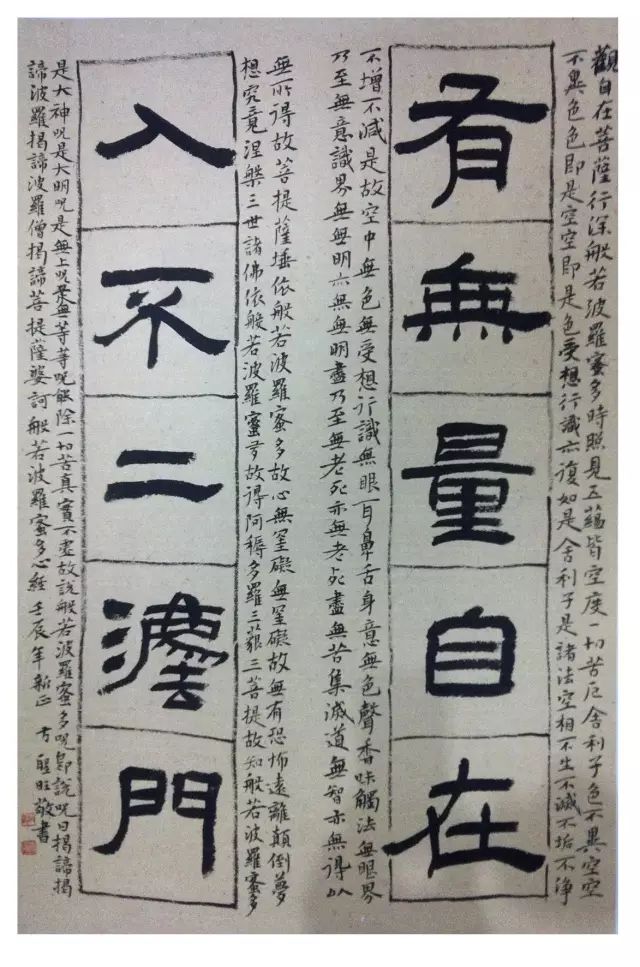 觀自在菩薩行深般若波羅蜜多時照見五蘊皆空度一切苦厄舍利子色不異空空
不異色色即是空空即是色受想行識亦復如是舍利子是諸法空相不生不滅不垢不淨
有無量自在
不增不減是故空中無色無受想行識無眼耳鼻舌身意無色聲香味觸法無眼界
乃至無意識界無無明亦無無明盡乃至無老死亦無老死盡無苦集滅道無智亦無得以
無所得故菩提薩埵依般若波羅蜜多故心無罣礙無罣礙故無有恐怖遠離顛倒夢
想究竟涅槃三世諸佛依般若波羅蜜多故得阿耨多羅三藐三菩提故知般若波羅蜜多
入不二灋門
是大神呪是大明呪是無上呪是無等等呪能除一切苦真實不虛故說般若波羅蜜多呪即說呪曰揭諦揭
諦波羅揭諦波羅僧揭諦菩提薩婆訶般若波羅蜜多心經 壬辰年新正 旺敬書